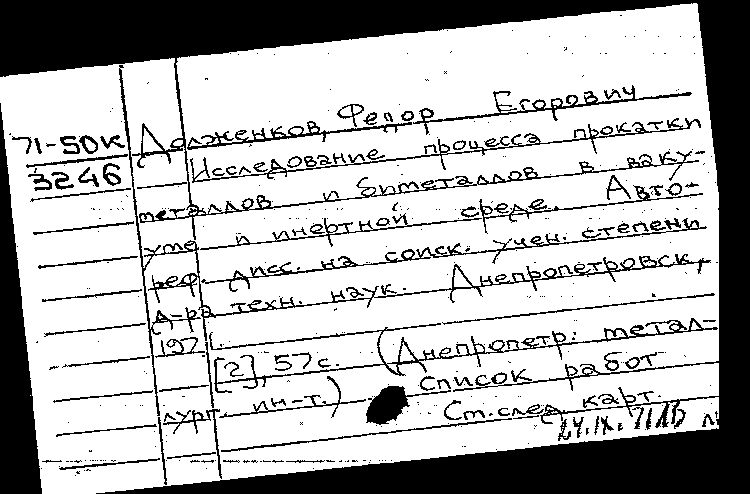 71-50к
3246
Долженков, Федор Егорович
Исследование процесса прокатки
металлов и биметаллов в ваку-
уме и инертной среде. Авто-
реф. дисс. на соиск. учен. степени
д-ра техн. наук. Днепропетровск,
1971.
[2], 57с. (Днепропетр. метал-
лург. ин-т.) Список работ
Ст. след. карт.
24.IX.71